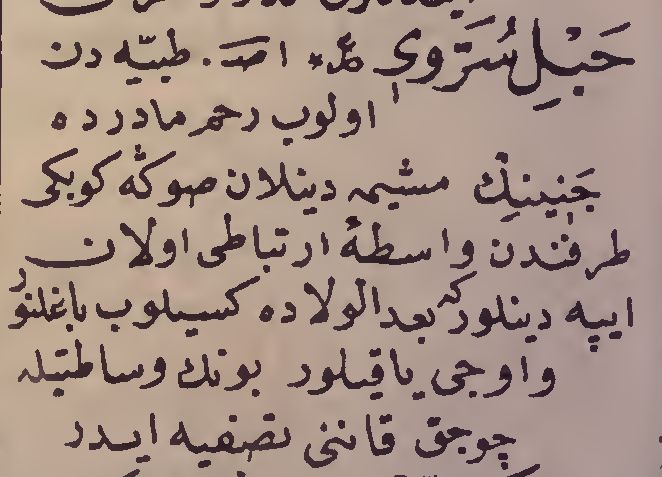 حَبْلِ سُرَّوِي عل * اصـ . طبيّه دن
اولوب رحم مادرده
جَنِينِڭ مشيمه دينلان صوڭه كوبكی
طرفندن واسطهٔ ارتباطی اولان
ايپه دينلور كه بعد الولاده كسيلوب باغلنور
واوجی ياقيلور بونك وساطتيله
چوجق قاننی تصفيه ايدر